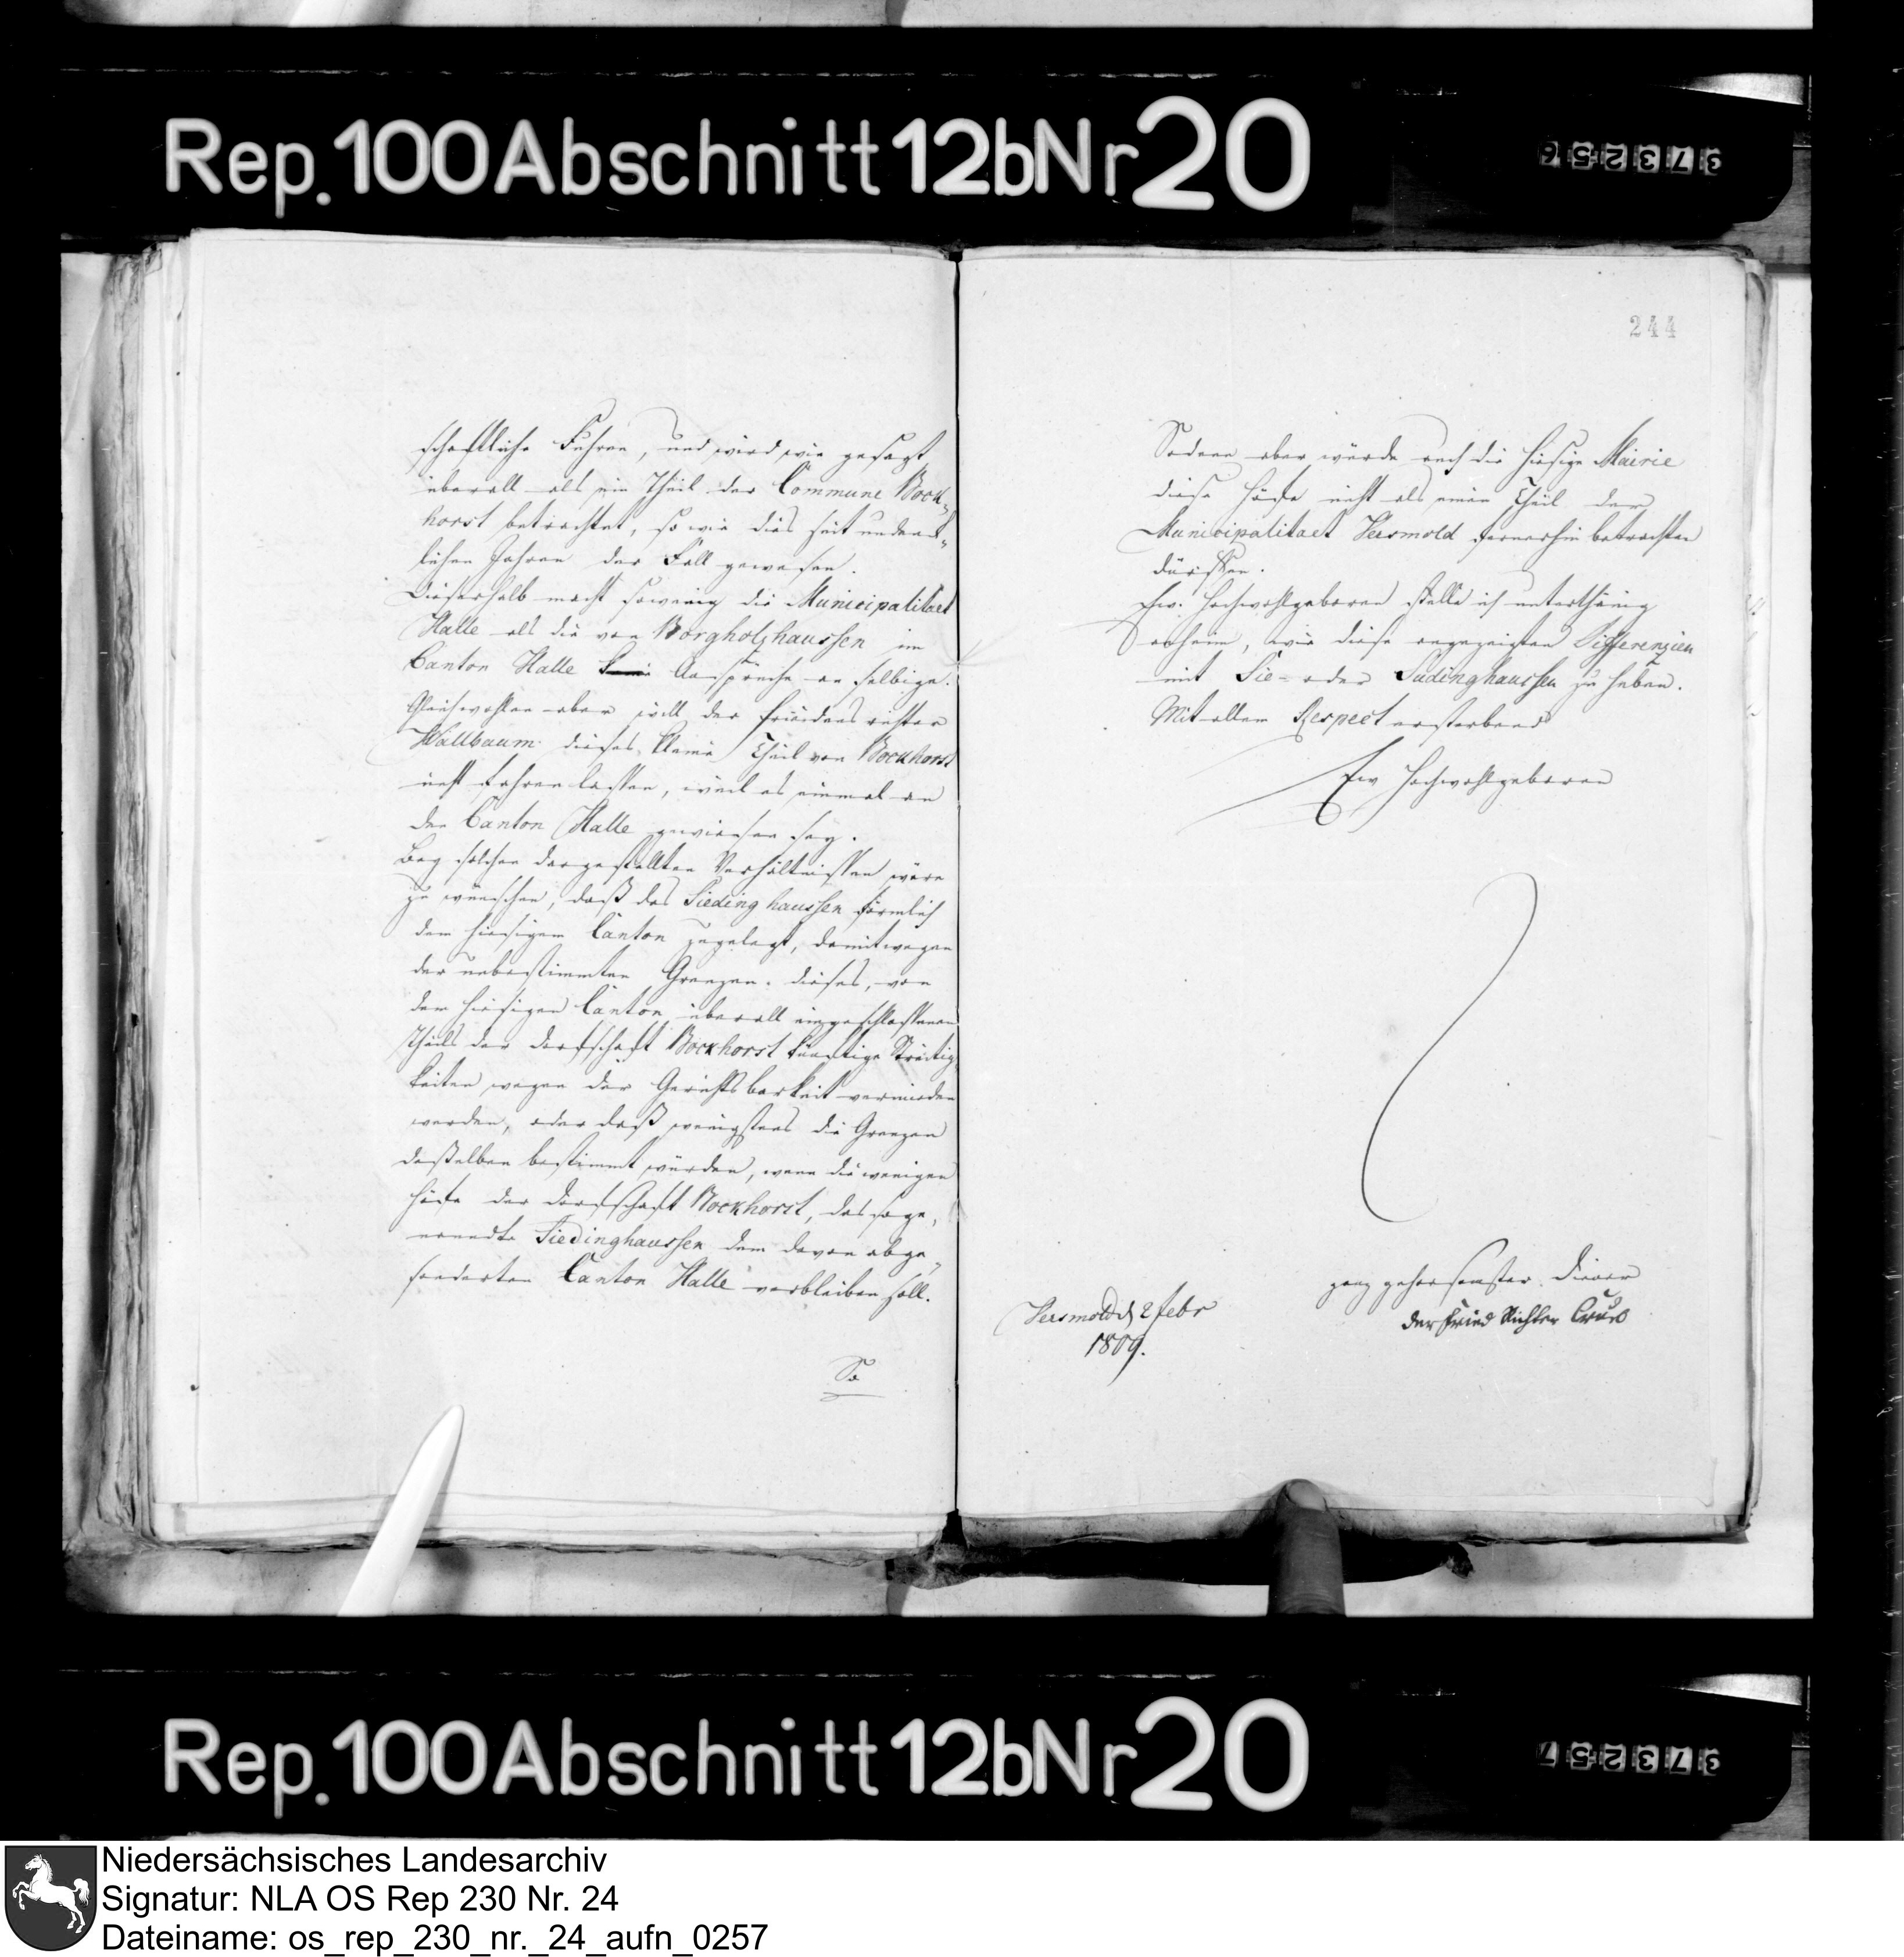 Rep. 100 Abschnitt 12b Nr 20
373256
244
schaftliche Fuhren, und wird wie gesagt
überall als ein Theil der Commune Bock-
horst betrachtet, so wie dies seit undenk-
lichen Jahren der Fall gewesen.
Dieserhalb macht sowenig die Municipalitaet
Halle als die von Borgholzhaussen im
Canton Halle Ansprüche an selbige.
Gleichwohlen aber will der Friedensrichter
Wallbaum dieses kleine Theil von Bockhorst
nicht fahren lassen, weil es einmal an
den Canton Halle gewiesen sey.
Bey solchen dargestellten Verhältnissen wäre
zu wünschen, daß das Siedinghaussen förmlich
dem hiesigen Canton zugelegt, damit wegen
der unbestimmten Grenzen dieses, von
dem hiesigen Canton überall eingeschlossenen
Theils der Dorfschaft Bockhorst künftige Streitig-
keiten wegen der Gerichtsbarkeit vermieden
werden, oder daß wenigstens die Grenzen
deßelben bestimmt würden, wenn die wenigen
Höfe der Dorfschaft Bockhorst, das soge-
nandte Siedinghaussen dem davon abge-
sonderten Canton Halle verbleiben soll.
So
Sodann aber würde auch die hiesige Mairie
diese Höfe nicht als einen Theil der
Municipalitaet Versmold fernerhin betrachten
dürffen.
Ew. Hochwohlgeboren stelle ich unterthänig
anheim, wie diese angezeigten Differenzien
mit Sie- oder Südinghaussen zu heben.
Mit allem Respect ersterbend
Ew Hochwohlgeboren
Versmold d 2 Febr
1809.
ganz gehorsamster Diener
der Fried Richter
Rep. 100 Abschnitt 12b Nr 20
373257
Niedersächsisches Landesarchiv
Signatur: NLA OS Rep 230 Nr. 24
Dateiname: os_rep_230_nr._24_aufn_0257